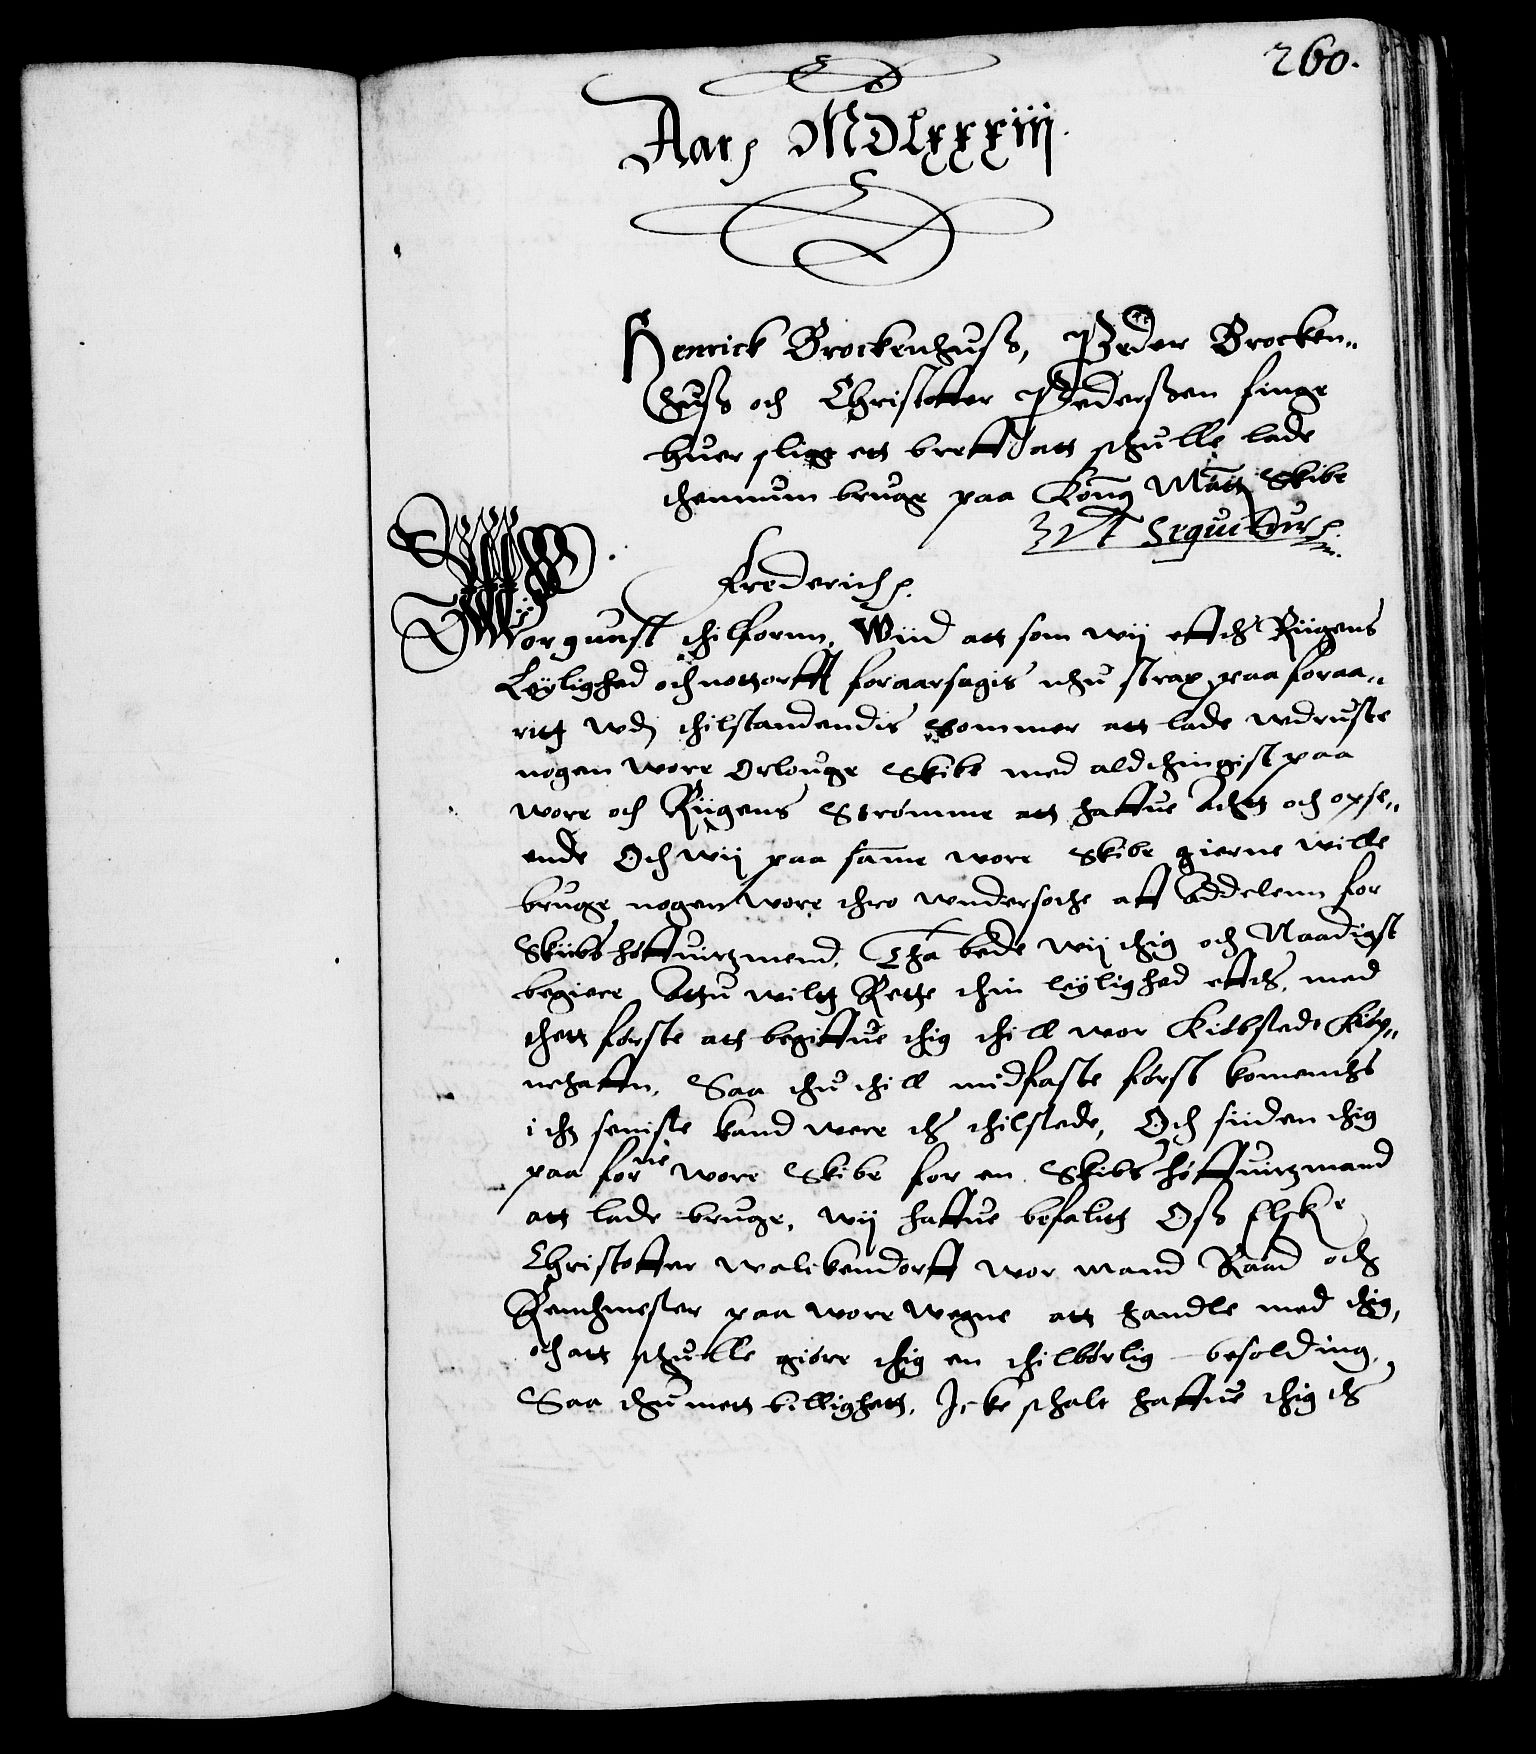 260.
Aars MDLxxxiij.
Henrick Brockenhuss, Peder Brocken„
huss och Christoffer Pederssen finge
huer sligt ett breff att schulle lade
thennum bruge paa Kong Matts Skibe
Vt Sequitur
Frederich
Wor gunst thilforun, Wiid att som wij effther Riigens
Leylighed och nottorfft foraarsagis nhu strax paa foraa„
ritt wdj thilstandendis Sommer att lade wdruste
nogen wore Orlouge Skibe med aldthingist paa
wore och Riigens Strømme att haffue Acht och opse„
ende Och wij paa samme wore Skibe gierne wille
bruge nogen wore thro wndersothe aff Addelenn for
Skiibs høffuitzmend, Tha bede wij thig och Naadigst
begiere Attu wiltt Rette thin leylighed effther, med
thett første att begiffue thig thill wor Kiøbstede Kiøp„
nehaffn, Saa thu thill midfaste først komendis
i thz seniste kand were ther thilstede, Och siiden thig
paa forne wore Skibe for en Skibs høffuitzmand
att lade bruge, wij haffue befalitt Oss Elske
Christoffer walckendorff wor mand Raad och
Rentmester paa wore wegne att handle med thig,
och att schulle giøre thig en thilbørlig besolding,
Saa thu mett billighett, Icke schalt haffue thig ther